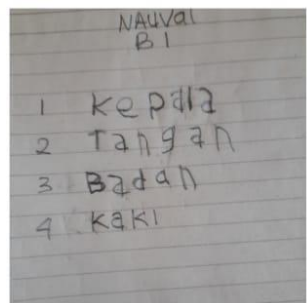 NAUVal
B 1
1 Kepala
2 Tangan
3 Badan
4 Kaki